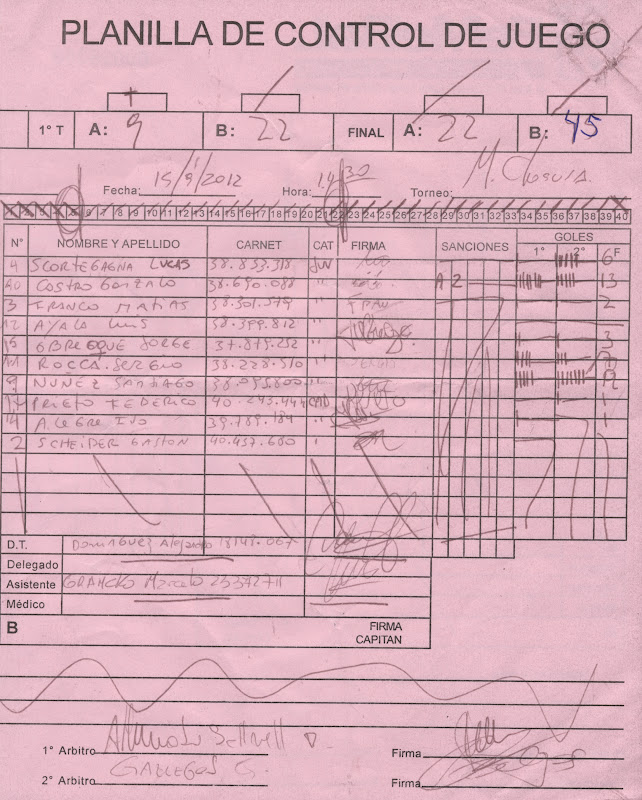 PLANILLA DE CONTROL DE JUEGO
1° T A: 9 B: 22 FINAL A: 22 B: 45
Fecha: 15/9/2012 Hora: 14:30 Torneo:
1 2 3 4 5 6 7 8 9 10 11 12 13 14 15 16 17 18 19 20 21 22 23 24 25 26 27 28 29 30 31 32 33 34 35 36 37 38 39 40
N° NOMBRE Y APELLIDO CARNET CAT FIRMA SANCIONES GOLES
1° 2° F
4 SCORTEGAGNA LUCAS 38.833.318 JUV 6
COSTRO GONZALO 38.690.088 " A 2 13
3 FRANCO MATIAS 38.301.579 " 2
12 AYALA LUIS 38.399.812 "
15 OBREQUE JORGE 37.875.252 " 3
11 ROCCA SERGIO 38.228.510 "
9 NUÑEZ SANTIAGO "
PRIETO FEDERICO 40.243.444 CAD 1
14 ALEGRE IVO 39.789.184 " 1
2 SCHEIDER GASTON 40.457.680
D.T. DOMINGUEZ Alejandro 18148.067
Delegado
Asistente Marcelo
Médico
B FIRMA
CAPITAN
1° Arbitro Firma
2° Arbitro GALLEGOS G. Firma